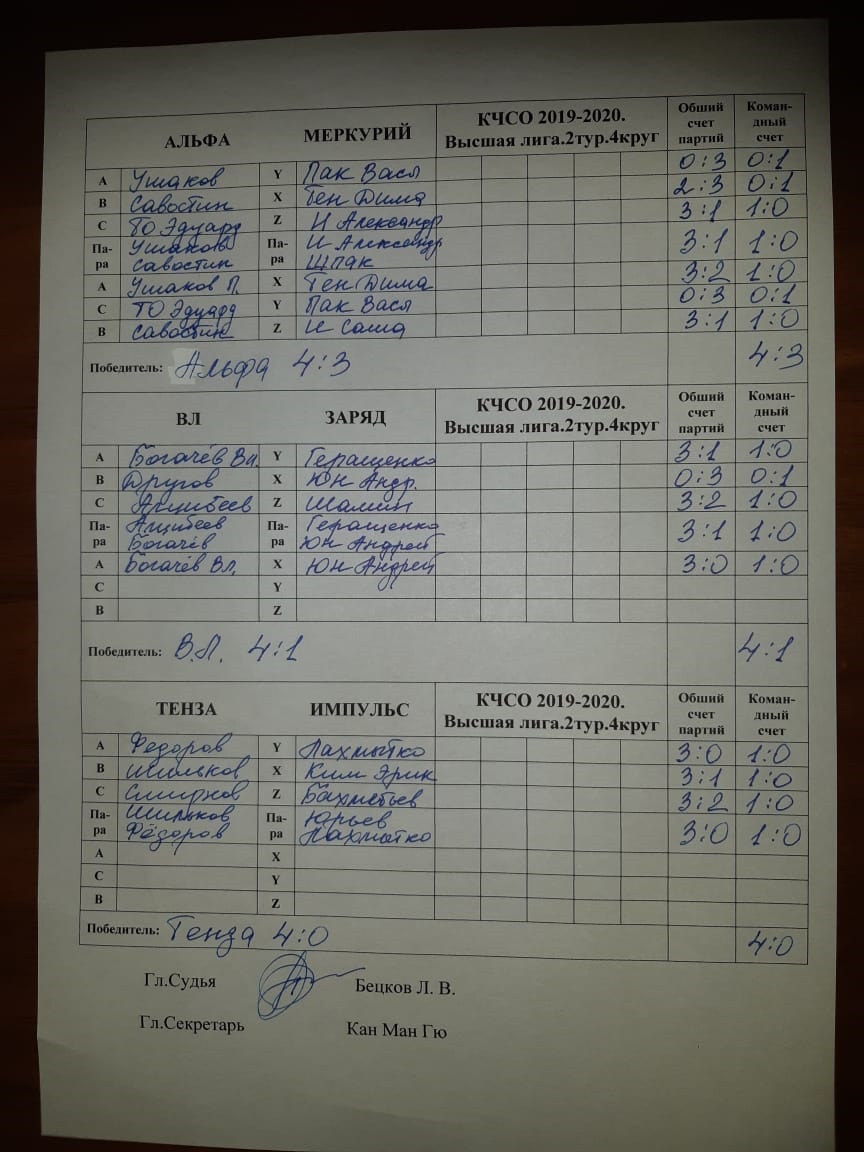 АЛЬФА МЕРКУРИЙ КЧСО 2019-2020. Высшая лига.2тур.4круг Обший счет партий Коман-дный счет
А Ушаков Y Пак Васл 0:3 0:1
В Савостин X Тен Дима 2:3 0:1
С ТО Эдуард Z И Александр 3:1 1:0
Па-ра Ушаков Савостин Па-ра И Александр Шпак 3:1 1:0
А Ушаков П. X Тен Дима 3:2 1:0
С ТО Эдуард Y Пак Васл 0:3 0:1
В Савостин Z И Саша 3:1 1:0
Победитель: Альфа 4:3 4:3
ВЛ ЗАРЯД КЧСО 2019-2020. Высшая лига.2тур.4круг Обший счет партий Коман-дный счет
А Богачёв Вл. Y Геращенко 3:1 1:0
В Другов X Юн Андр. 0:3 0:1
С Алцибеев Z Шамин 3:2 1:0
Па-ра Алцибеев Богачёв Па-ра Геращенко Юн Андрей 3:1 1:0
А Богачёв Вл. X Юн Андрей 3:0 1:0
С Y
В Z
Победитель: В.Л. 4:1 4:1
ТЕНЗА ИМПУЛЬС КЧСО 2019-2020. Высшая лига.2тур.4круг Обший счет партий Коман-дный счет
А Федоров Y Лахмытко 3:0 1:0
В Шильков X Ким Эрик 3:1 1:0
С Смирнов Z Бахметьев 3:2 1:0
Па-ра Шильков Фёдоров Па-ра Юрьев Лахмытко 3:0 1:0
А X
С Y
В Z
Победитель: Тенза 4:0 4:0
Гл.Судья Бецков Л. В.
Гл.Секретарь Кан Ман Гю